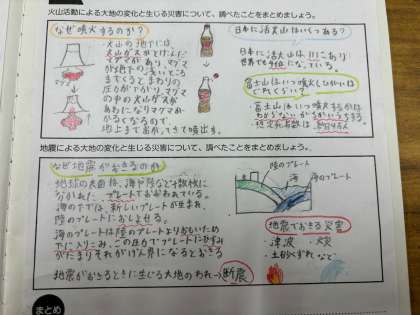 火山活動による大地の変化と生じる災害について、調べたことをまとめましょう。
なぜ噴火するのか?
火山の地下には
火山ガスがとけこんだ
マグマがあり、マグマ
が地下の浅いところ
まですくるとまわりの
圧力が下がり、マグマ
の中の火山ガスが
あわになりかるくなるので、
地上まで
出て噴出する。
日本に活火山はいくつある?
日本に活火山は111こあり
世界でも
になっている。
富士山はいつ噴火
富士山はいつ噴火するかは
わからない
地震による大地の変化と生じる災害について、調べたことをまとめましょう。
なぜ地震がおきるのか
地球の表面は、海や陸など十数枚に
分かれた、プレートでおおわれている。
海の下では、新しいプレートが生まれ、
陸のプレートにおしよせる。
海のプレートは陸のプレートよりおもいため
下に入りこみ、この圧力でプレートにひずみ
がたまりそれがげん界になるとおきる
地震がおきるときに生じる大地のわれ→断震
陸のプレート
海 海のプレート
地震でおきる災害
・津波 ・火災
・土砂くずれなど
まとめ